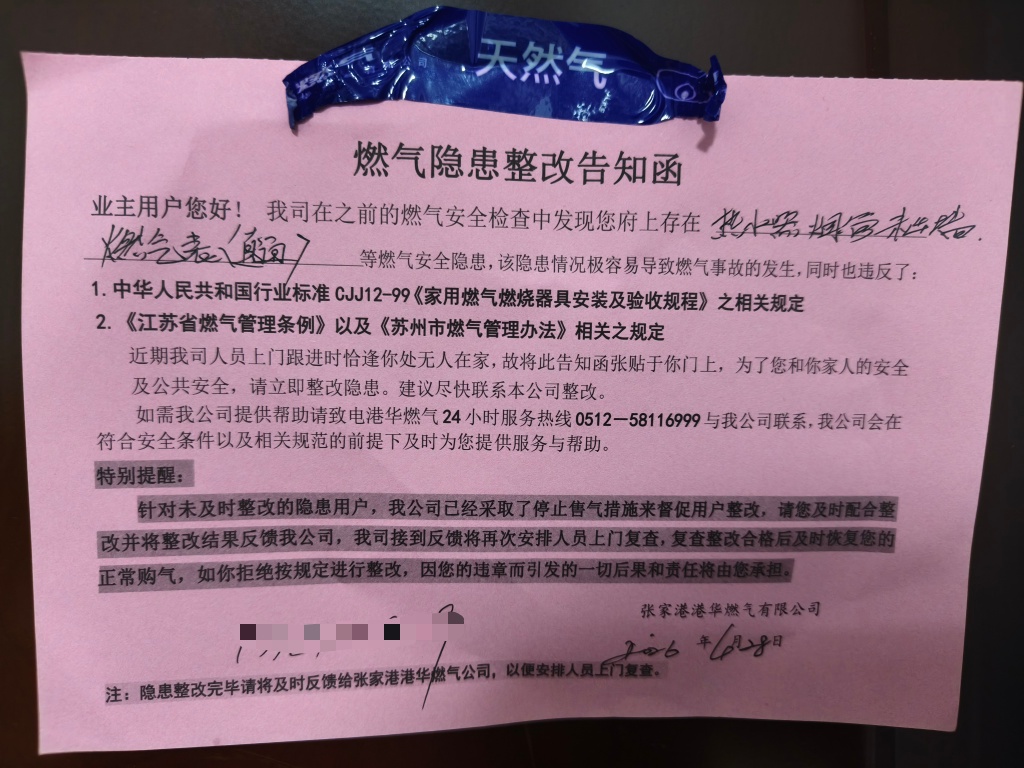 天然气
燃气隐患整改告知函
业主用户您好！ 我司在之前的燃气安全检查中发现您府上存在 热水器烟管未出墙.
燃气表 等燃气安全隐患，该隐患情况极容易导致燃气事故的发生，同时也违反了：
1.中华人民共和国行业标准 CJJ12-99《家用燃气燃烧器具安装及验收规程》之相关规定
2.《江苏省燃气管理条例》以及《苏州市燃气管理办法》相关之规定
近期我司人员上门跟进时恰逢你处无人在家，故将此告知函张贴于你门上，为了您和你家人的安全
及公共安全，请立即整改隐患。建议尽快联系本公司整改。
如需我公司提供帮助请致电港华燃气 24 小时服务热线 0512—58116999 与我公司联系，我公司会在
符合安全条件以及相关规范的前提下及时为您提供服务与帮助。
特别提醒：
针对未及时整改的隐患用户，我公司已经采取了停止售气措施来督促用户整改，请您及时配合整
改并将整改结果反馈我公司，我司接到反馈将再次安排人员上门复查，复查整改合格后及时恢复您的
正常购气，如你拒绝按规定进行整改，因您的违章而引发的一切后果和责任将由您承担。
张家港港华燃气有限公司
年 6月28日
注：隐患整改完毕请将及时反馈给张家港港华燃气公司，以便安排人员上门复查。